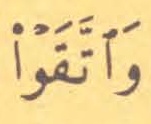 وَٱتَّقَوۡاْ